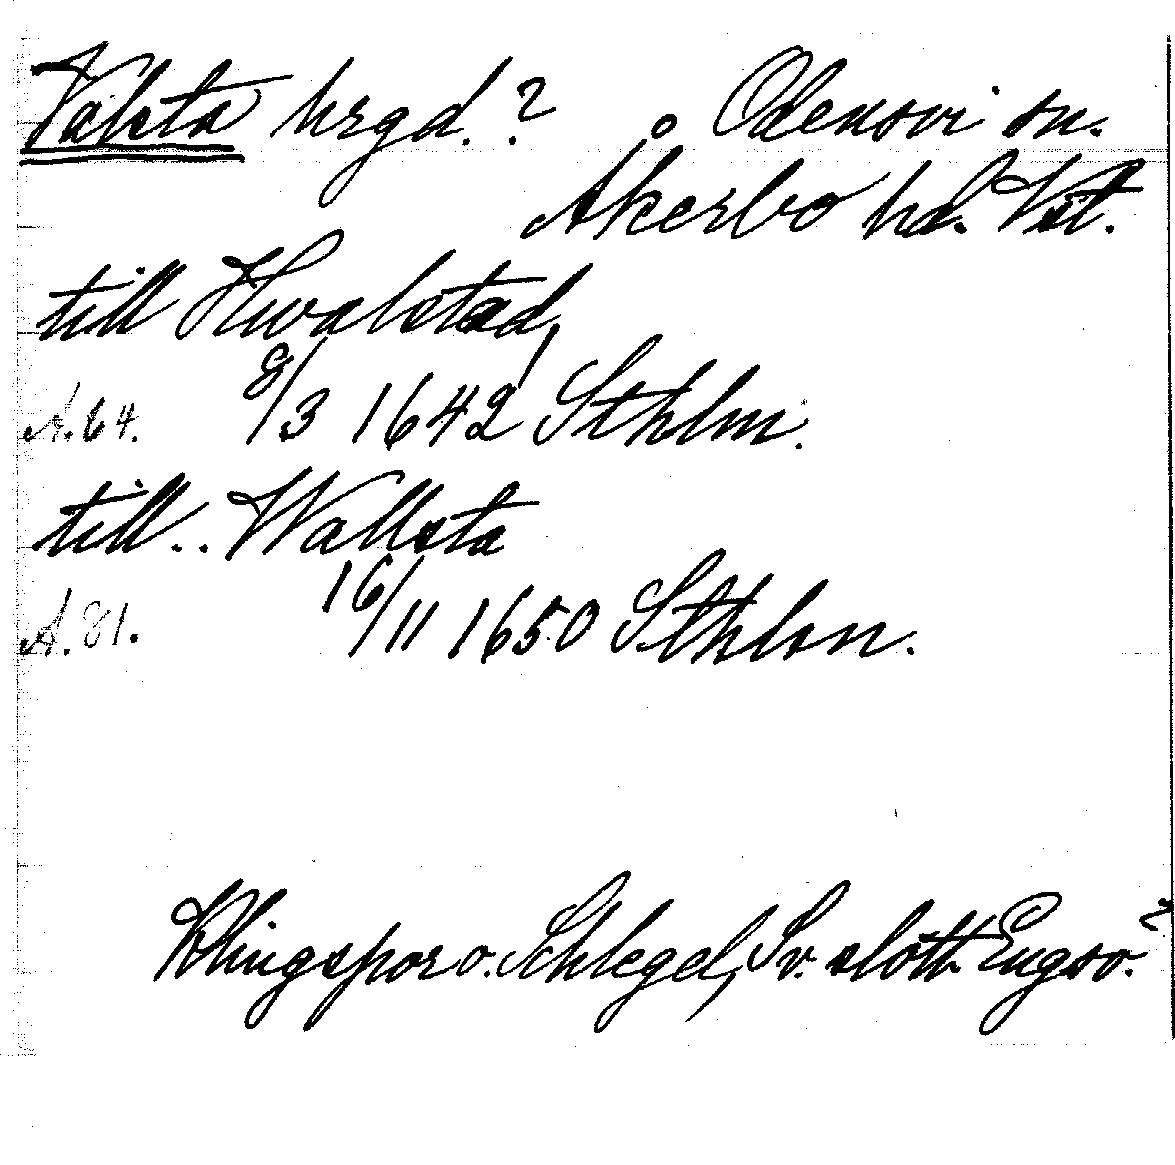 Valsta hrgd.? Odensvi sn.
Åkerbo hd. Vstl.
till Hwalstad,
A.64. 8/3 1642 Sthlm.
till.. Wallsta
A.81. 16/11 1650 Sthlm.
Klingspor o. Schlegel, Sv. slott Engsö.?